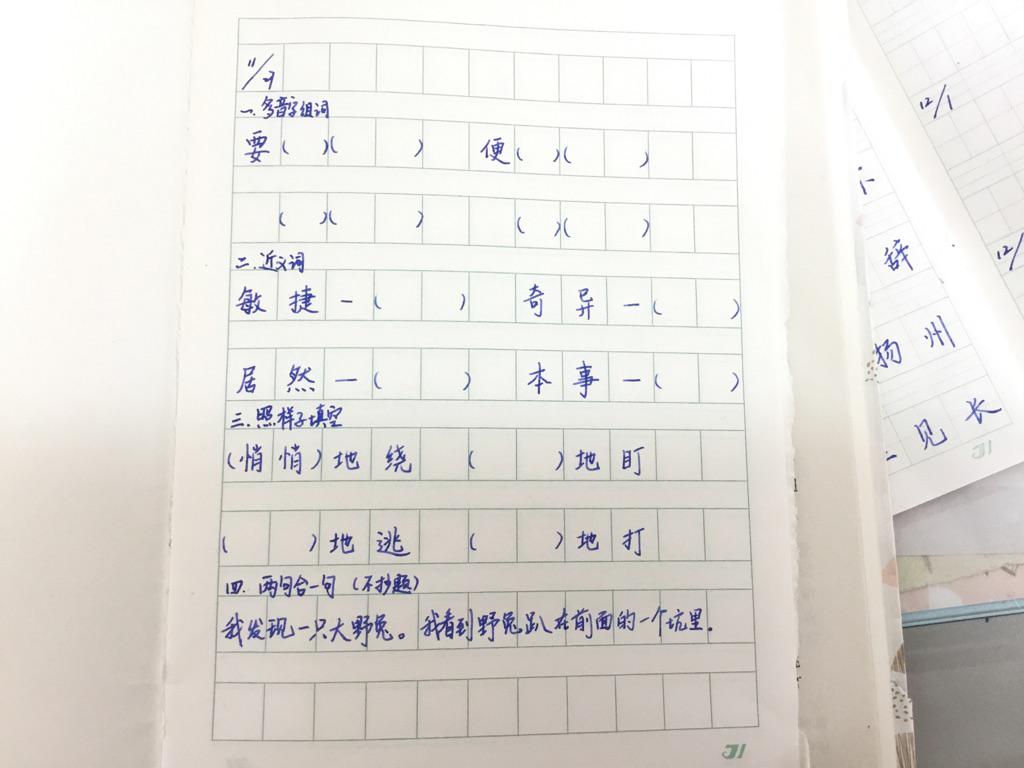 11/29
一.多音字组词
要( )( ) 便( )( )
( )( ) ( )( )
二.近义词
敏捷—( ) 奇异—( )
居然—( ) 本事—( )
三.照样子填空
(悄悄)地绕 ( )地盯
( )地逃 ( )地打
四.两句合一句(不抄题)
我发现一只大野兔。我看到野兔趴在前面的一个坑里。
12/1
辞
扬州
见长